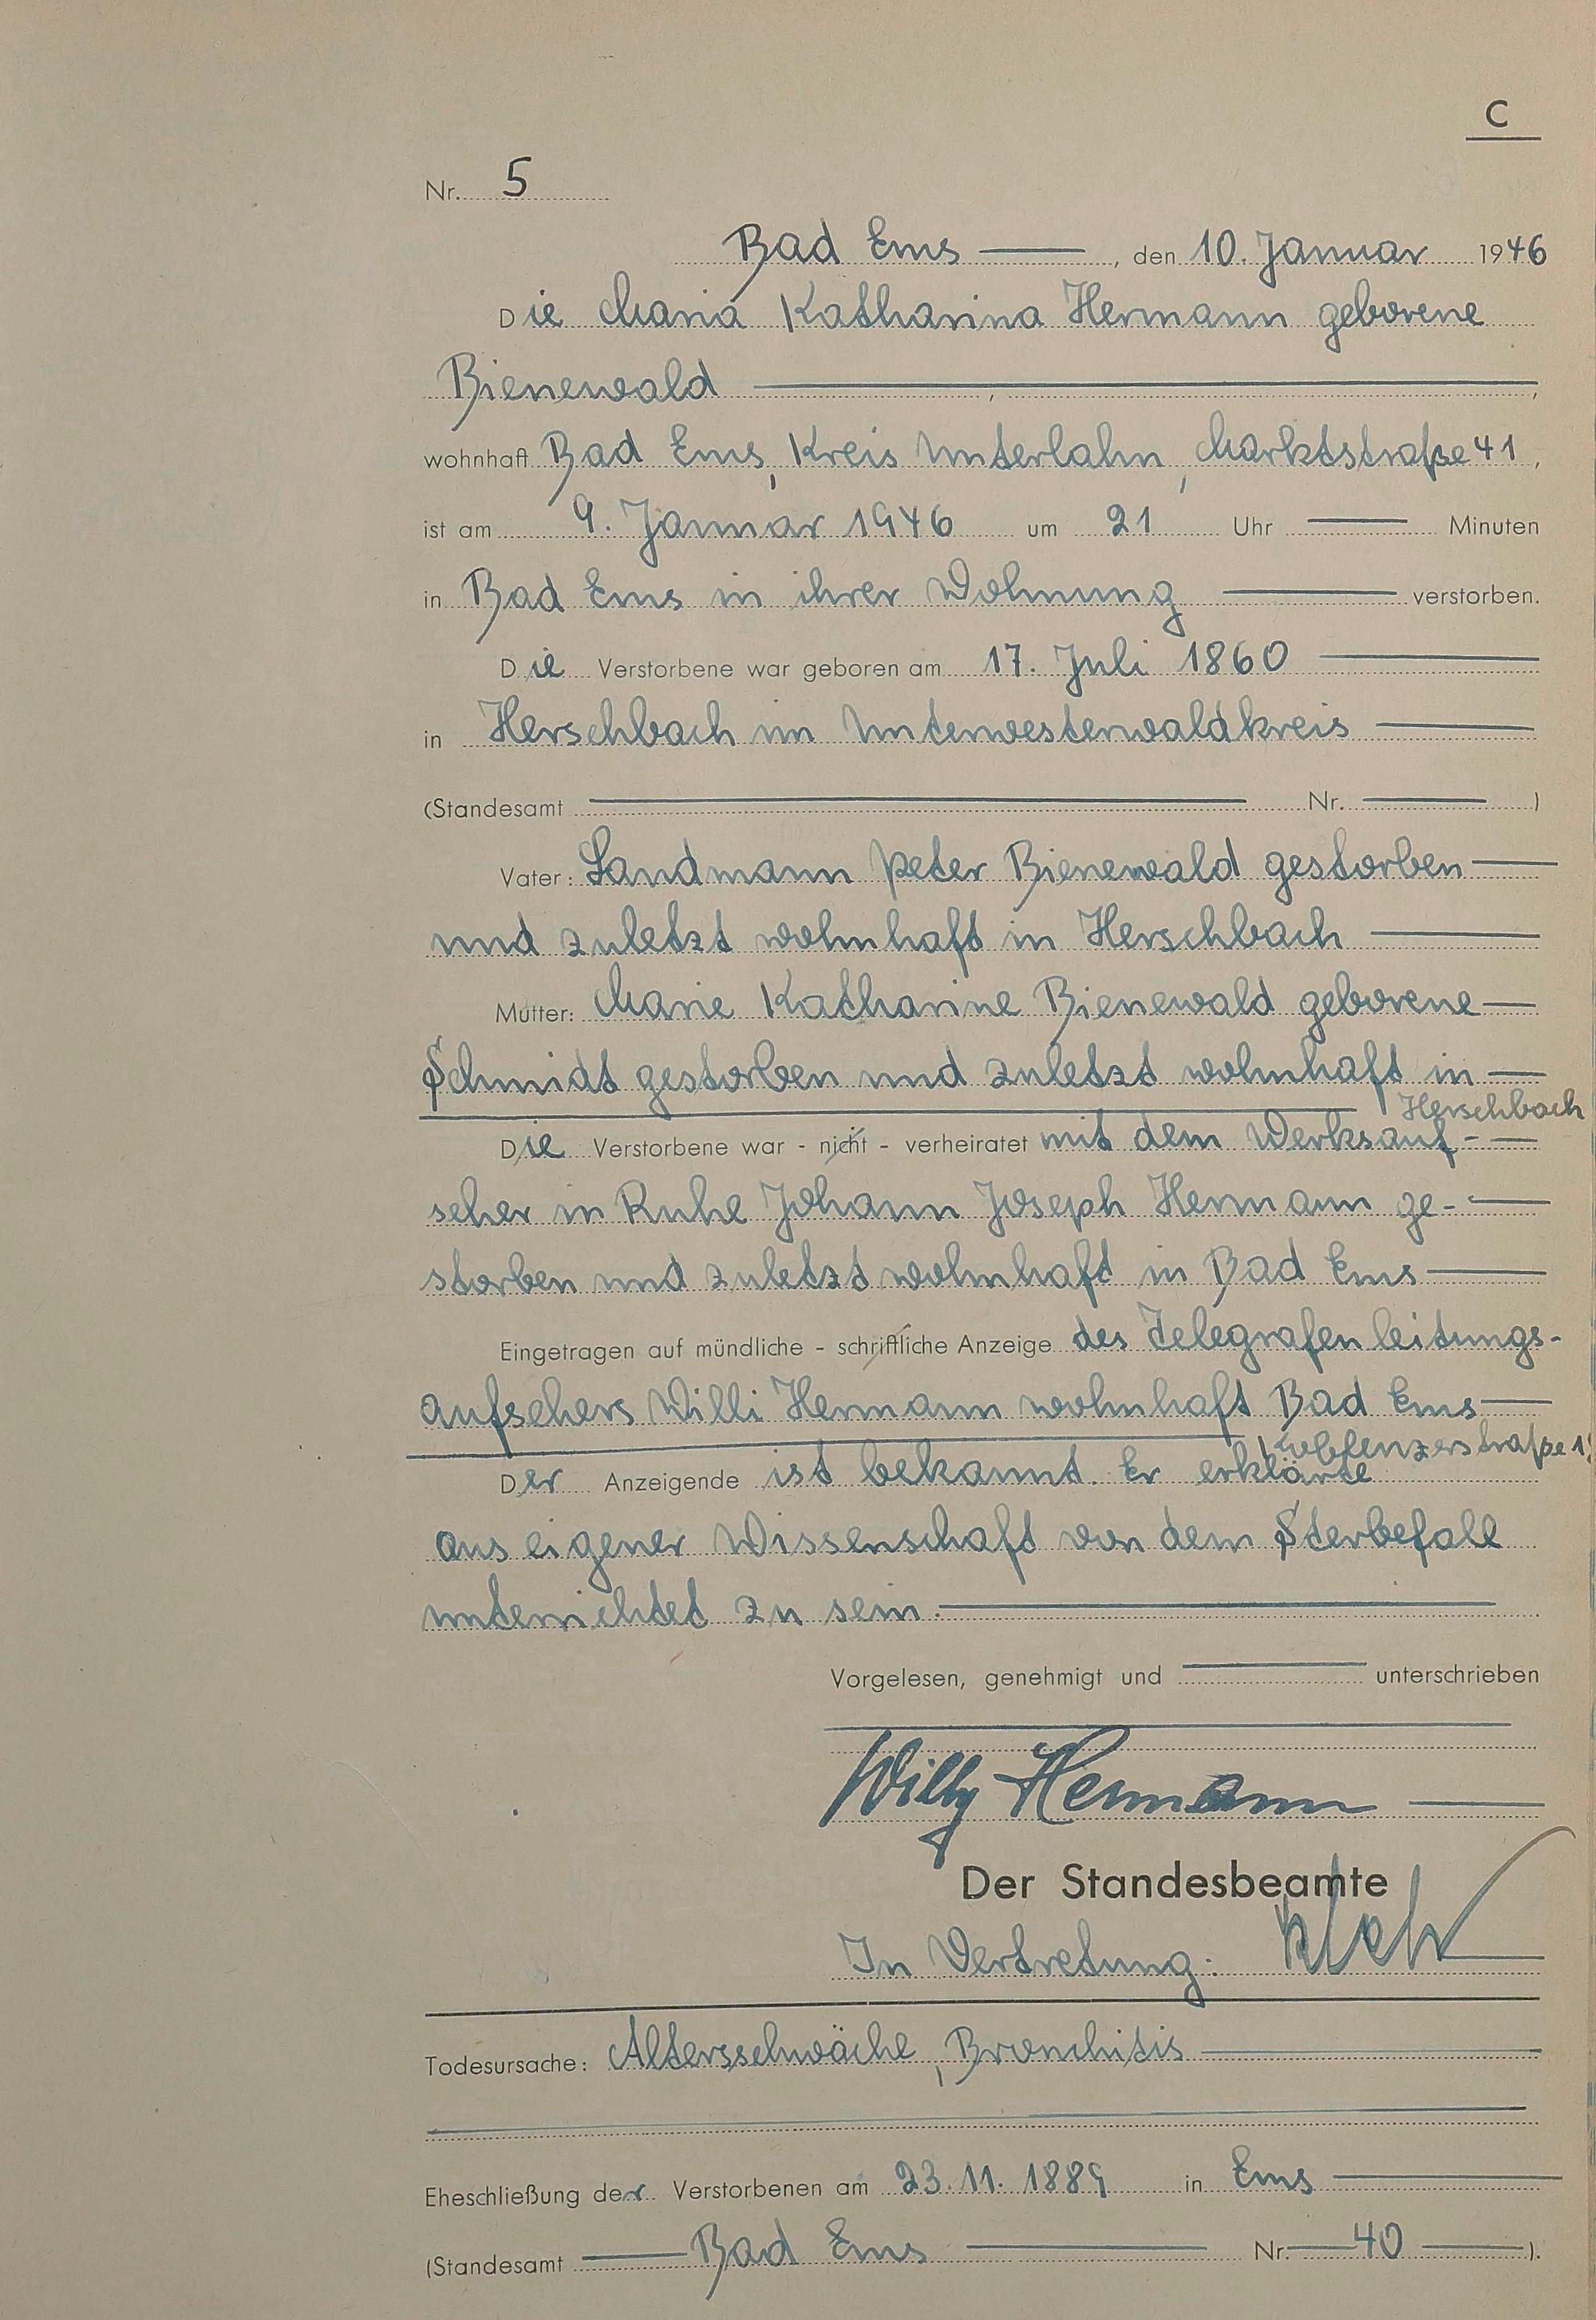 C
Nr. 5
Bad Ems , den 10. Januar 1946
Die Maria Katharina Hermann geborene
Bienewald , ,
wohnhaft Bad Ems, Kreis Unterlahn, Marktstraße 41 ,
ist am 9. Januar 1946 um 21 Uhr Minuten
in Bad Ems in ihrer Wohnung verstorben.
Die Verstorbene war geboren am 17. Juli 1860
in Herschbach im Unterwesterwaldkreis
(Standesamt Nr. )
Vater: Landmann Peter Bienewald gestorben
und zuletzt wohnhaft in Herschbach
Mutter: Marie Katharine Bienewald geborene
Schmidt gestorben und zuletzt wohnhaft in
Herschbach
Die Verstorbene war - nicht - verheiratet mit dem Werksauf-
seher in Ruhe Johann Joseph Hermann ge-
storben und zuletzt wohnhaft in Bad Ems
Eingetragen auf mündliche - schriftliche Anzeige des Telegrafenleitungs-
aufsehers Willi Hermann wohnhaft Bad Ems
Koblenzerstraße
Der Anzeigende ist bekannt. Er erklärte
aus eigener Wissenschaft von dem Sterbefall
unterrichtet zu sein.
Vorgelesen, genehmigt und unterschrieben
Willy Hermann
Der Standesbeamte
In Vertretung:
Todesursache: Altersschwäche, Bronchitis
Eheschließung der Verstorbenen am 23.11.1889 in Ems
(Standesamt Bad Ems Nr. 40 ).